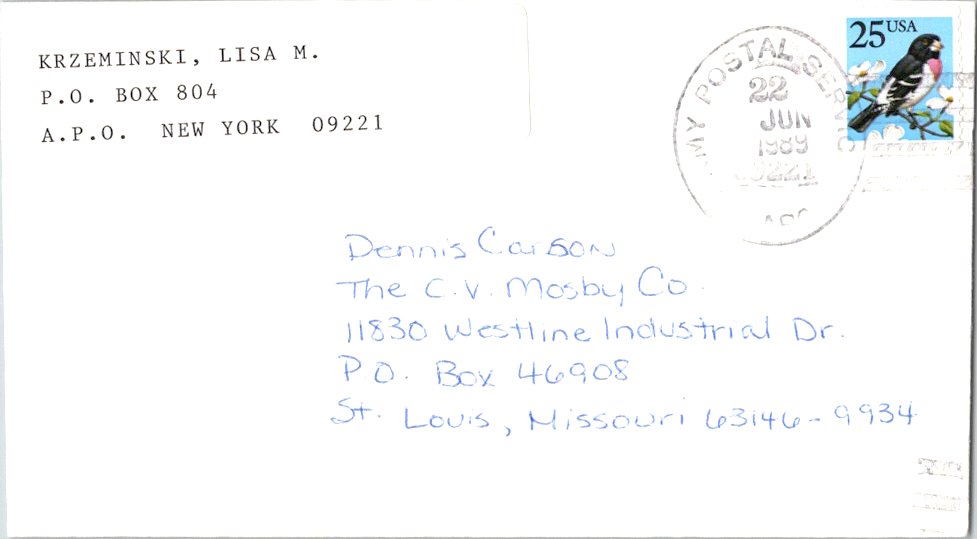 KRZEMINSKI, LISA M.
P.O. BOX 804
A.P.O. NEW YORK 09221
25 USA
MY POSTAL SERVIC
22
JUN
1989
Dennis Carson
The C.V. Mosby Co.
11830 Westline Industrial Dr.
P.O. Box 46908
St. Louis, Missouri 63146-9934